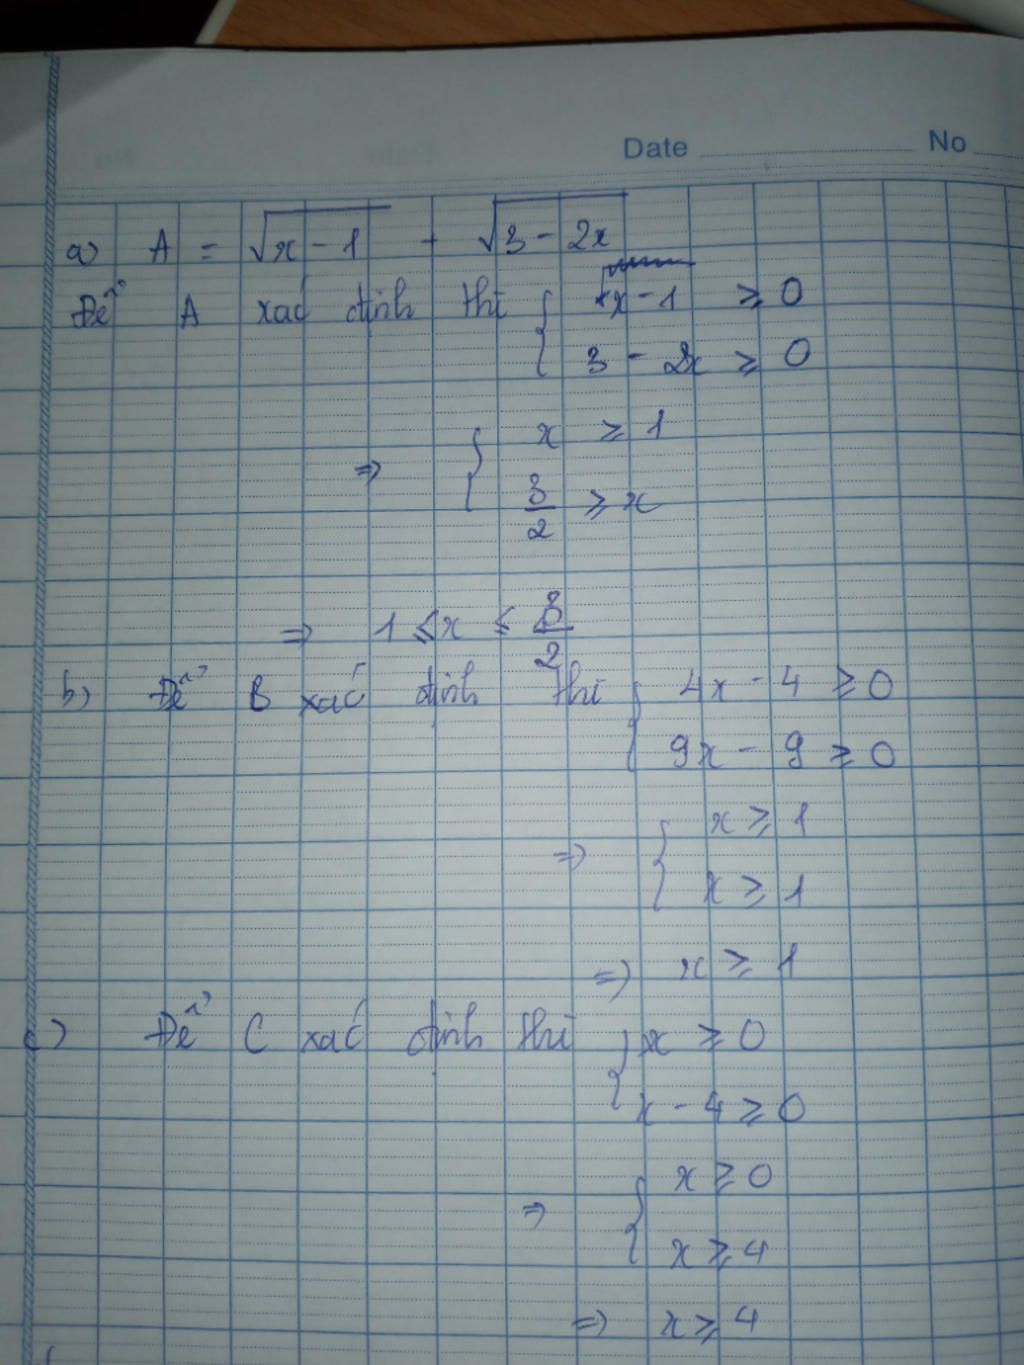 Date No
a) A = √x - 1 + √3 - 2x
Để A xác định thì { x - 1 ≥ 0
3 - 2x ≥ 0
⇒ { x ≥ 1
3/2 ≥ x
⇒ 1 ≤ x ≤ 3/2
b) Để B xác định thì { 4x - 4 ≥ 0
9x - 9 ≥ 0
⇒ { x ≥ 1
x ≥ 1
⇒ x ≥ 1
c) Để C xác định thì { x ≥ 0
x - 4 ≥ 0
⇒ { x ≥ 0
x ≥ 4
⇒ x ≥ 4